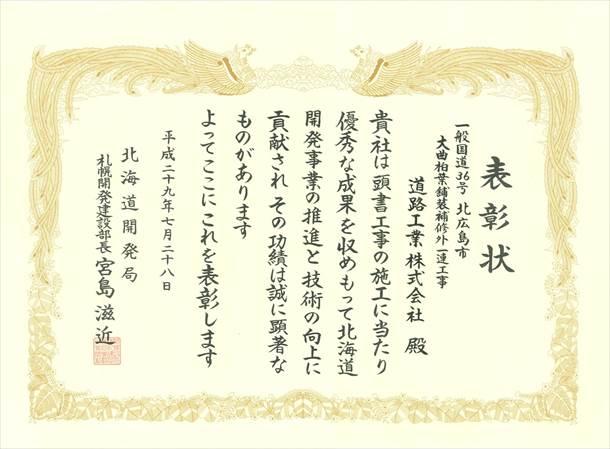 表彰状
一般国道36号 北広島市
大曲柏葉舗装補修外一連工事
道路工業株式会社 殿
貴社は頭書工事の施工に当たり
優秀な成果を収めもって北海道
開発事業の推進と技術の向上に
貢献され その功績は誠に顕著な
ものがあります
よってここに これを表彰します
平成二十九年七月二十八日
北海道開発局
札幌開発建設部長 宮島滋近